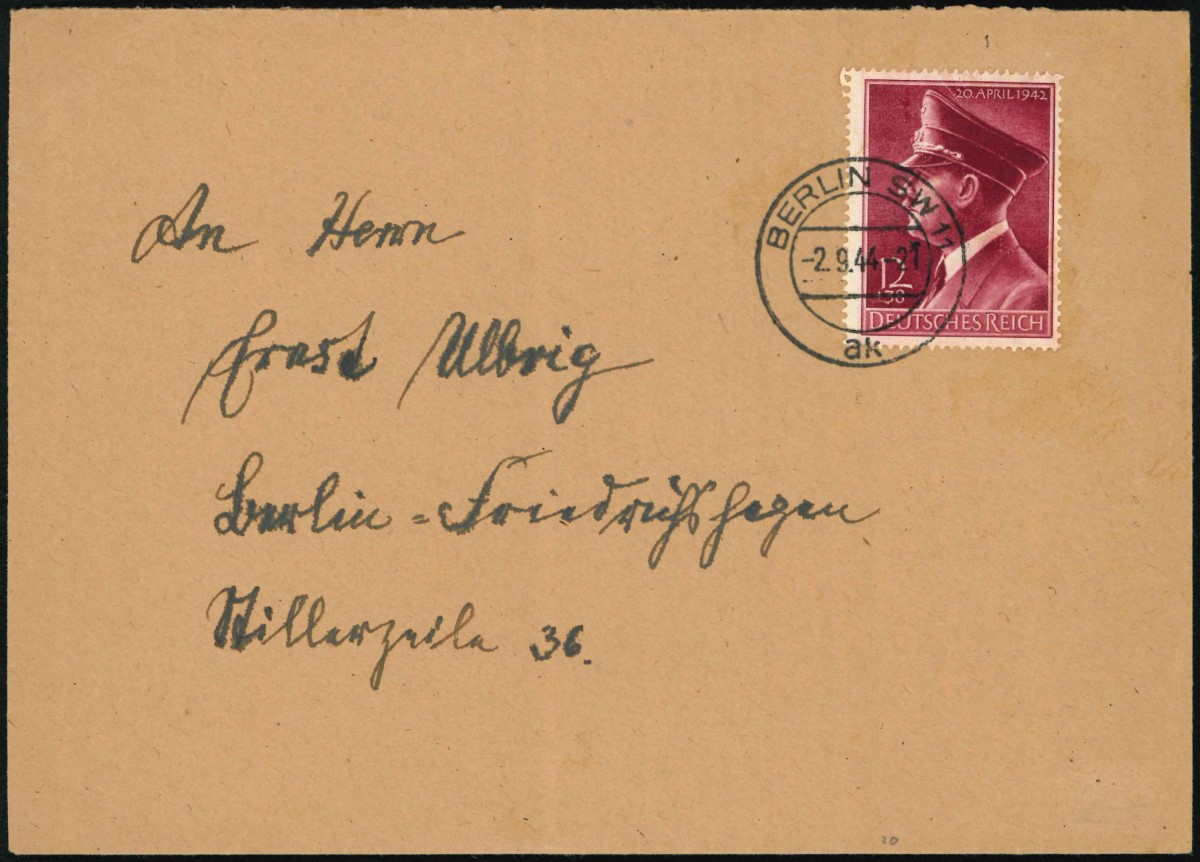 1
20. APRIL 1942
BERLIN SW 11
-2.9.44-21
ak
12
38
DEUTSCHES REICH
An Herrn
Ernst Ulbrig
Berlin=Friedrichshagen
Stillerzeile 36.
20